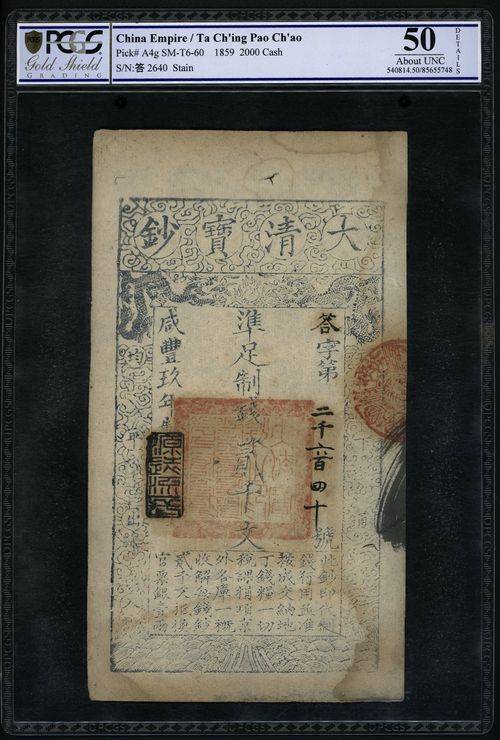 PCGS
Gold Shield
GRADING
China Empire / Ta Ch'ing Pao Ch'ao
Pick# A4g SM-T6-60 1859 2000 Cash
S/N:答 2640 Stain
50
About UNC
DETAILS
540814.50/85655748
大清寶鈔
答字第
二千六百四十
號
準足制錢貳千文
咸豐玖年
此鈔即代制
錢行用並準
按成交納地
丁錢糧一切
稅課捐項京
外各庫一概
收解每錢鈔
貳千文抵換
官票銀壹兩